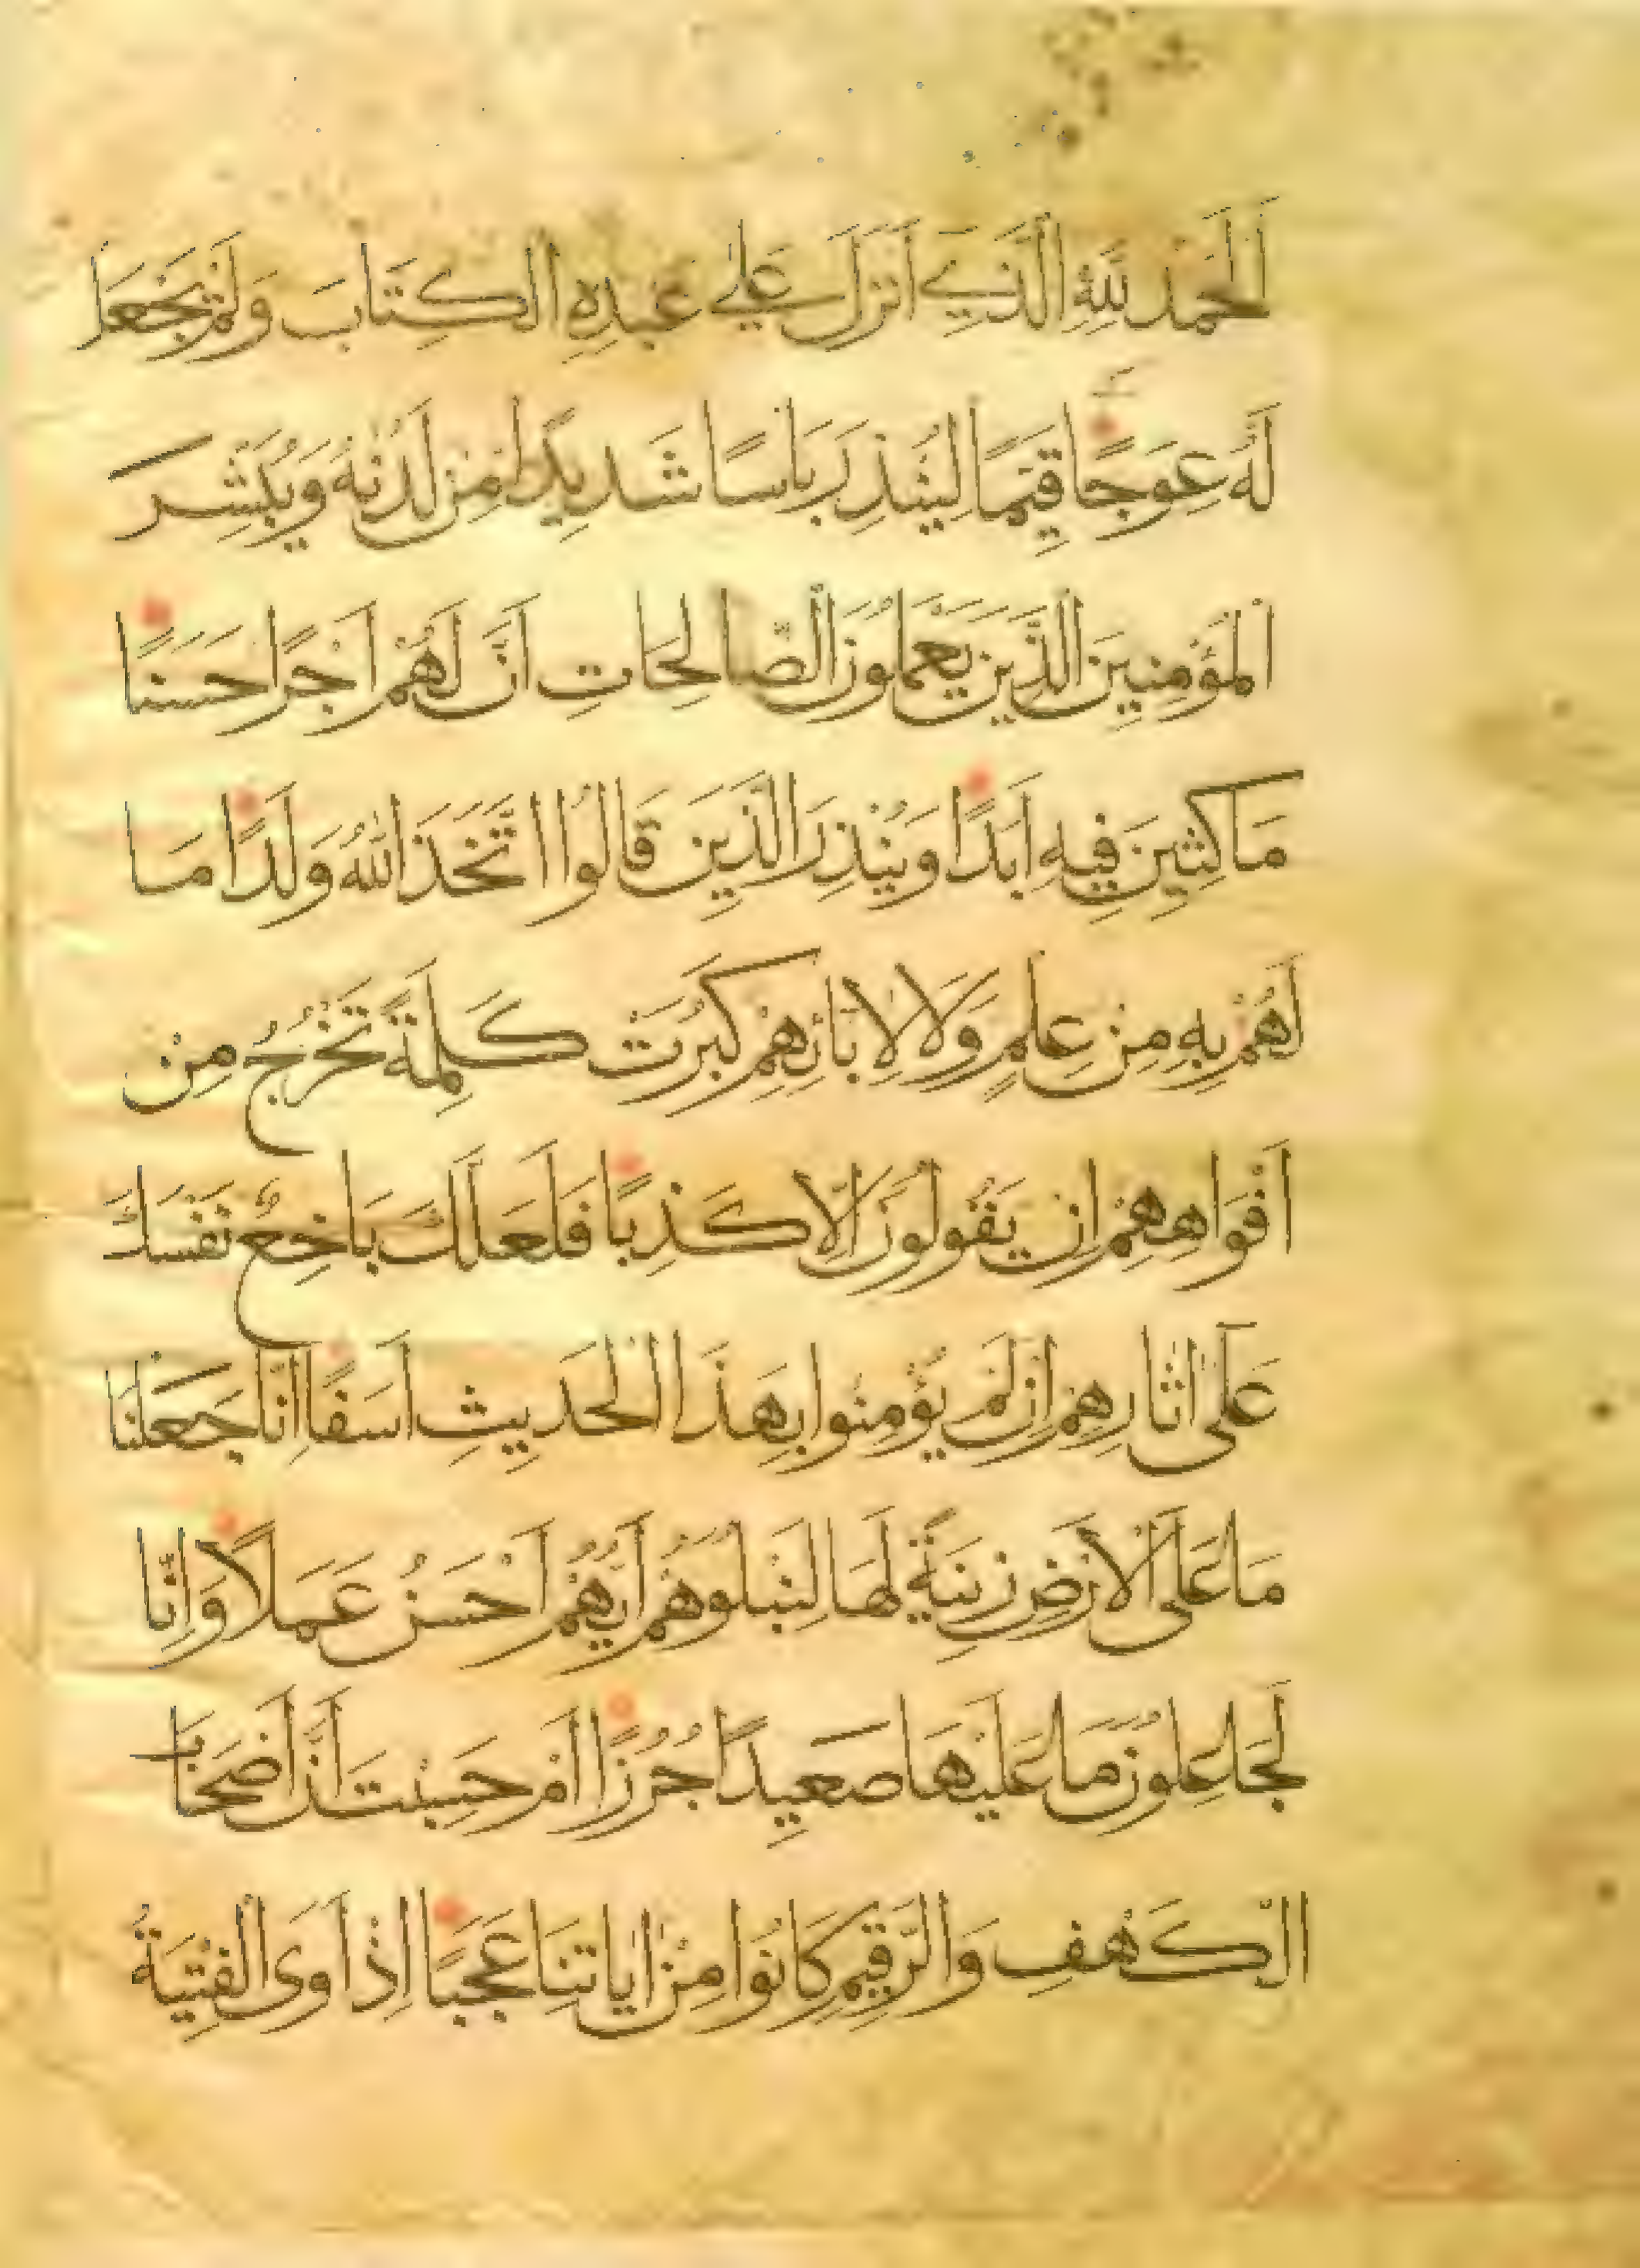 اَلْحَمْدُ لِلّٰهِ الَّذِي اَنْزَلَ عَلٰي عَبْدِهِ الْكِتَابَ وَلَمْ يَجْعَلْ
لَهُ عِوَجًا قَيِّمًا لِيُنْذِرَ بَاْسًا شَدِيدًا مِنْ لَدُنْهُ وَيُبَشِّرَ
الْمُؤْمِنِينَ الَّذِينَ يَعْمَلُونَ الصَّالِحَاتِ اَنَّ لَهُمْ اَجْرًا حَسَنًا
مَاكِثِينَ فِيهِ اَبَدًا وَيُنْذِرَ الَّذِينَ قَالُوا اتَّخَذَ اللّٰهُ وَلَدًا مَا
لَهُمْ بِهِ مِنْ عِلْمٍ وَلَا لِاٰبَائِهِمْ كَبُرَتْ كَلِمَةً تَخْرُجُ مِنْ
اَفْوَاهِهِمْ اِنْ يَقُولُونَ اِلَّا كَذِبًا فَلَعَلَّكَ بَاخِعٌ نَفْسَكَ
عَلٰٓى اٰثَارِهِمْ اِنْ لَمْ يُؤْمِنُوا بِهَذَا الْحَدِيثِ اَسَفًا اِنَّا جَعَلْنَا
مَا عَلَى الْاَرْضِ زِينَةً لَهَا لِنَبْلُوَهُمْ اَيُّهُمْ اَحْسَنُ عَمَلًا وَاِنَّا
لَجَاعِلُونَ مَا عَلَيْهَا صَعِيدًا جُرُزًا اَمْ حَسِبْتَ اَنَّ اَصْحَابَ
الْكَهْفِ وَالرَّقِيمِ كَانُوا مِنْ اٰيَاتِنَا عَجَبًا اِذْ اَوَى الْفِتْيَةُ